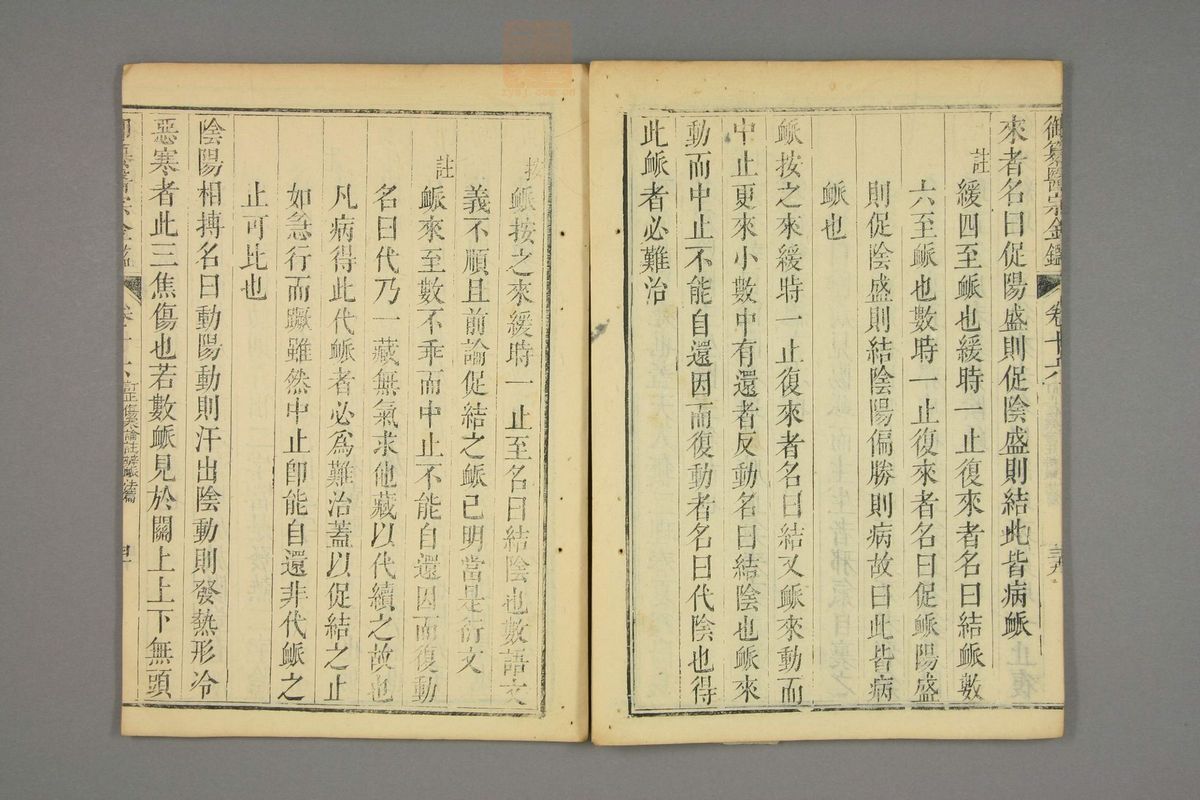 御纂醫宗金鑑 卷十六 三九
來者名曰促陽盛則促陰盛則結此皆病脈
註
緩四至脈也緩時一止復來者名曰結脈數
六至脈也數時一止復來者名曰促脈陽盛
則促陰盛則結陰陽偏勝則病故曰此皆病
脈也
脈按之來緩時一止復來者名曰結又脈來動而
中止更來小數中有還者反動名曰結陰也脈來
動而中止不能自還因而復動者名曰代陰也得
此脈者必難治
按
脈按之來緩時一止至名曰結陰也數語文
義不順且前論促結之脈已明當是衍文
註
脈來至數不乖而中止不能自還因而復動
名曰代乃一藏無氣求他藏以代續之故也
凡病得此代脈者必爲難治蓋以促結之止
如急行而蹶雖然中止卽能自還非代脈之
止可比也
陰陽相搏名曰動陽動則汗出陰動則發熱形冷
惡寒者此三焦傷也若數脈見於關上上下無頭
醫宗金鑑 訂正傷寒論註辨脈法篇 四十